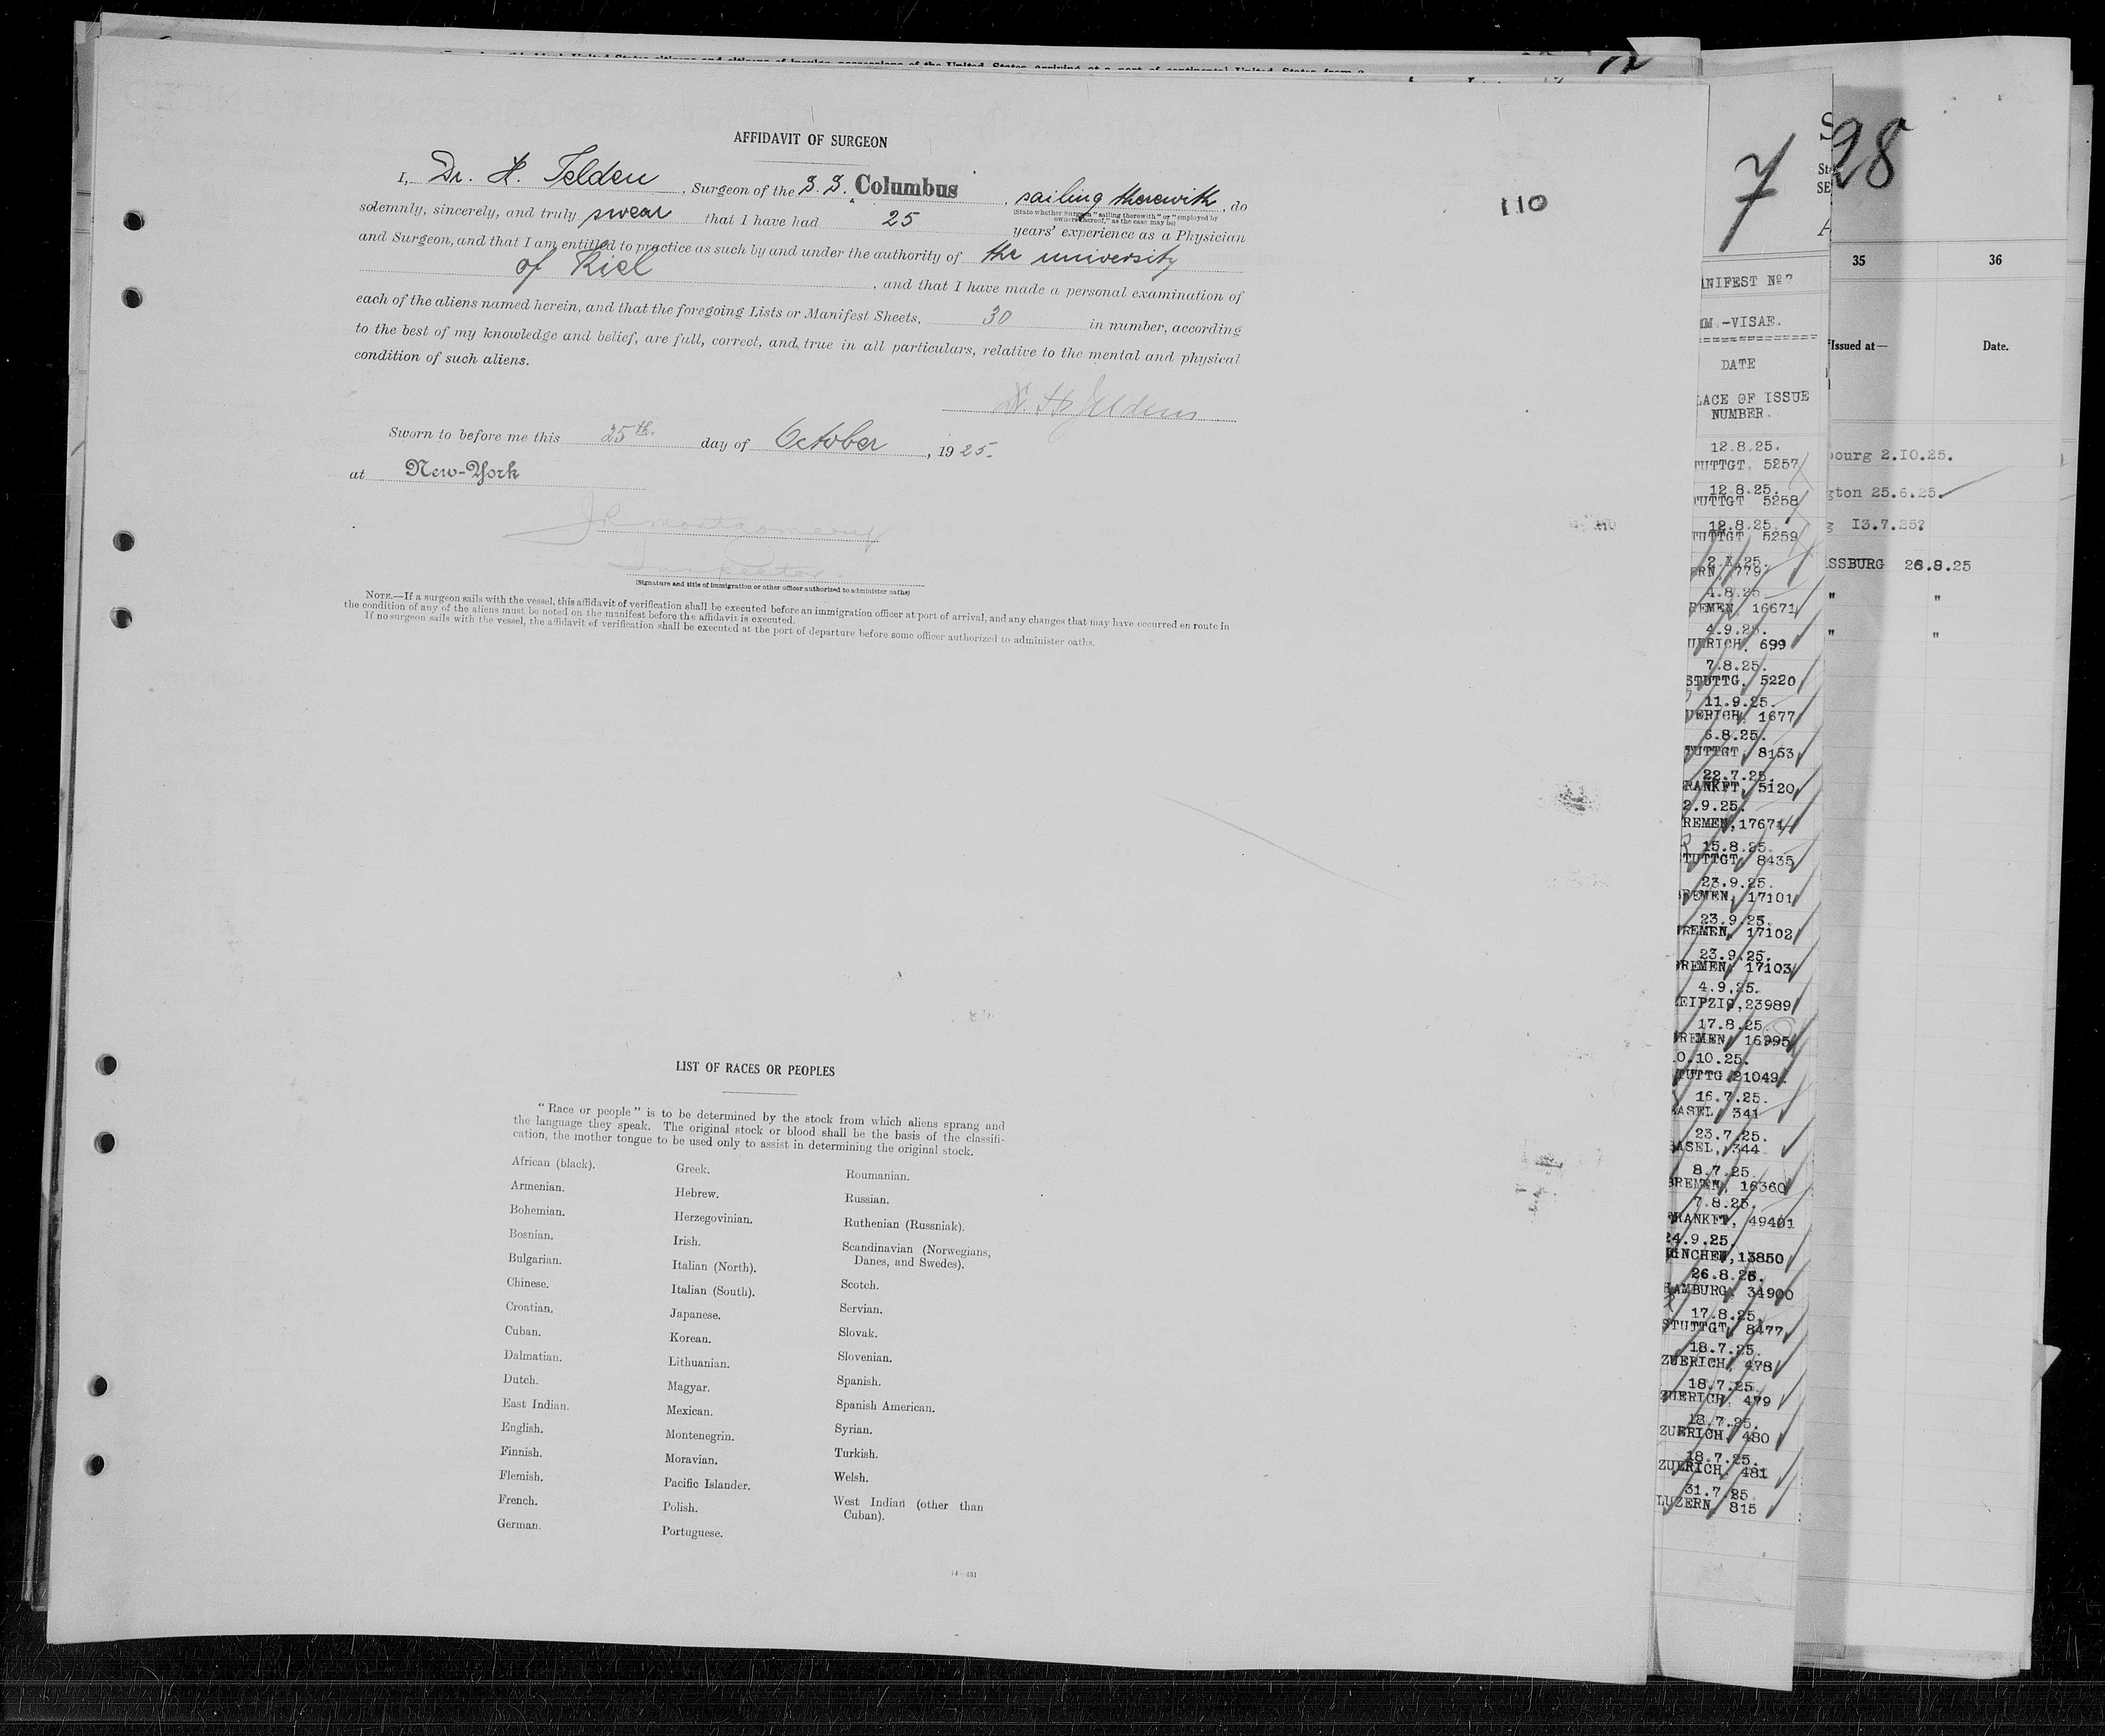 AFFIDAVIT OF SURGEON
I, Dr. H. Felden, Surgeon of the S. S. Columbus, sailing therewith, do
(State whether Surgeon "sailing therewith" or "employed by
owners thereof," as the case may be)
solemnly, sincerely, and truly swear that I have had 25 years' experience as a Physician
and Surgeon, and that I am entitled to practice as such by and under the authority of the university
of Kiel, and that I have made a personal examination of
each of the aliens named herein, and that the foregoing Lists or Manifest Sheets, 30 in number, according
to the best of my knowledge and belief, are full, correct, and true in all particulars, relative to the mental and physical
condition of such aliens.
Sworn to before me this 25th. day of October, 1925.
at New-York
Montgomery
Inspector.
(Signature and title of immigration or other officer authorized to administer oaths)
NOTE.—If a surgeon sails with the vessel, this affidavit of verification shall be executed before an immigration officer at port of arrival, and any changes that may have occurred en route in
the condition of any of the aliens must be noted on the manifest before the affidavit is executed.
If no surgeon sails with the vessel, the affidavit of verification shall be executed at the port of departure before some officer authorized to administer oaths.
110
LIST OF RACES OR PEOPLES
"Race or people" is to be determined by the stock from which aliens sprang and
the language they speak. The original stock or blood shall be the basis of the classifi-
cation, the mother tongue to be used only to assist in determining the original stock.
African (black).
Armenian.
Bohemian.
Bosnian.
Bulgarian.
Chinese.
Croatian.
Cuban.
Dalmatian.
Dutch.
East Indian.
English.
Finnish.
Flemish.
French.
German.
Greek.
Hebrew.
Herzegovinian.
Irish.
Italian (North).
Italian (South).
Japanese.
Korean.
Lithuanian.
Magyar.
Mexican.
Montenegrin.
Moravian.
Pacific Islander.
Polish.
Portuguese.
Roumanian.
Russian.
Ruthenian (Russniak).
Scandinavian (Norwegians,
Danes, and Swedes).
Scotch.
Servian.
Slovak.
Slovenian.
Spanish.
Spanish American.
Syrian.
Turkish.
Welsh.
West Indian (other than
Cuban).
14—431
7
ANIFEST Nº7
MM.-VISAE.
DATE
LACE OF ISSUE
NUMBER.
12.8.25.
TUTTGT. 5257
12.8.25.
TUTTGT 5258
12.8.25.
TUTTGT 5259
2.X.25.
ERN, 779
4.8.25.
REMEN, 16671
4.9.25.
UERICH. 699
7.8.25.
STUTTG. 5220
11.9.25.
UERICH, 1677
6.8.25.
TUTTGT, 8153
22.7.25.
RANKFT, 5120
2.9.25.
REMEN,17671
15.8.25.
TUTTGT, 8435
23.9.25.
REMEN, 17101
23.9.25.
REMEN, 17102
23.9.25.
REMEN, 17103
4.9.25.
EIPZIG,23989
17.8.25.
REMEN, 16995
0.10.25.
TUTTG.21049.
16.7.25.
BASEL, 341
23.7.25.
BASEL, 344
8.7.25.
BREMEN, 16360
7.8.25.
FRANKFT, 49401
24.9.25.
NCHEN,13850
26.8.25.
HAMBURG, 34900
17.8.25.
STUTTGT, 8477
18.7.25.
ZUERICH, 478
18.7.25.
ZUERICH, 479
18.7.25.
ZUERICH, 480
18.7.25.
ZUERICH, 481
31.7.25.
LUZERN, 815
28
35
36
Issued at—
Date.
bourg 2.10.25.
gton 25.6.25.
g 13.7.25?
SSBURG 26.8.25
" "
" "